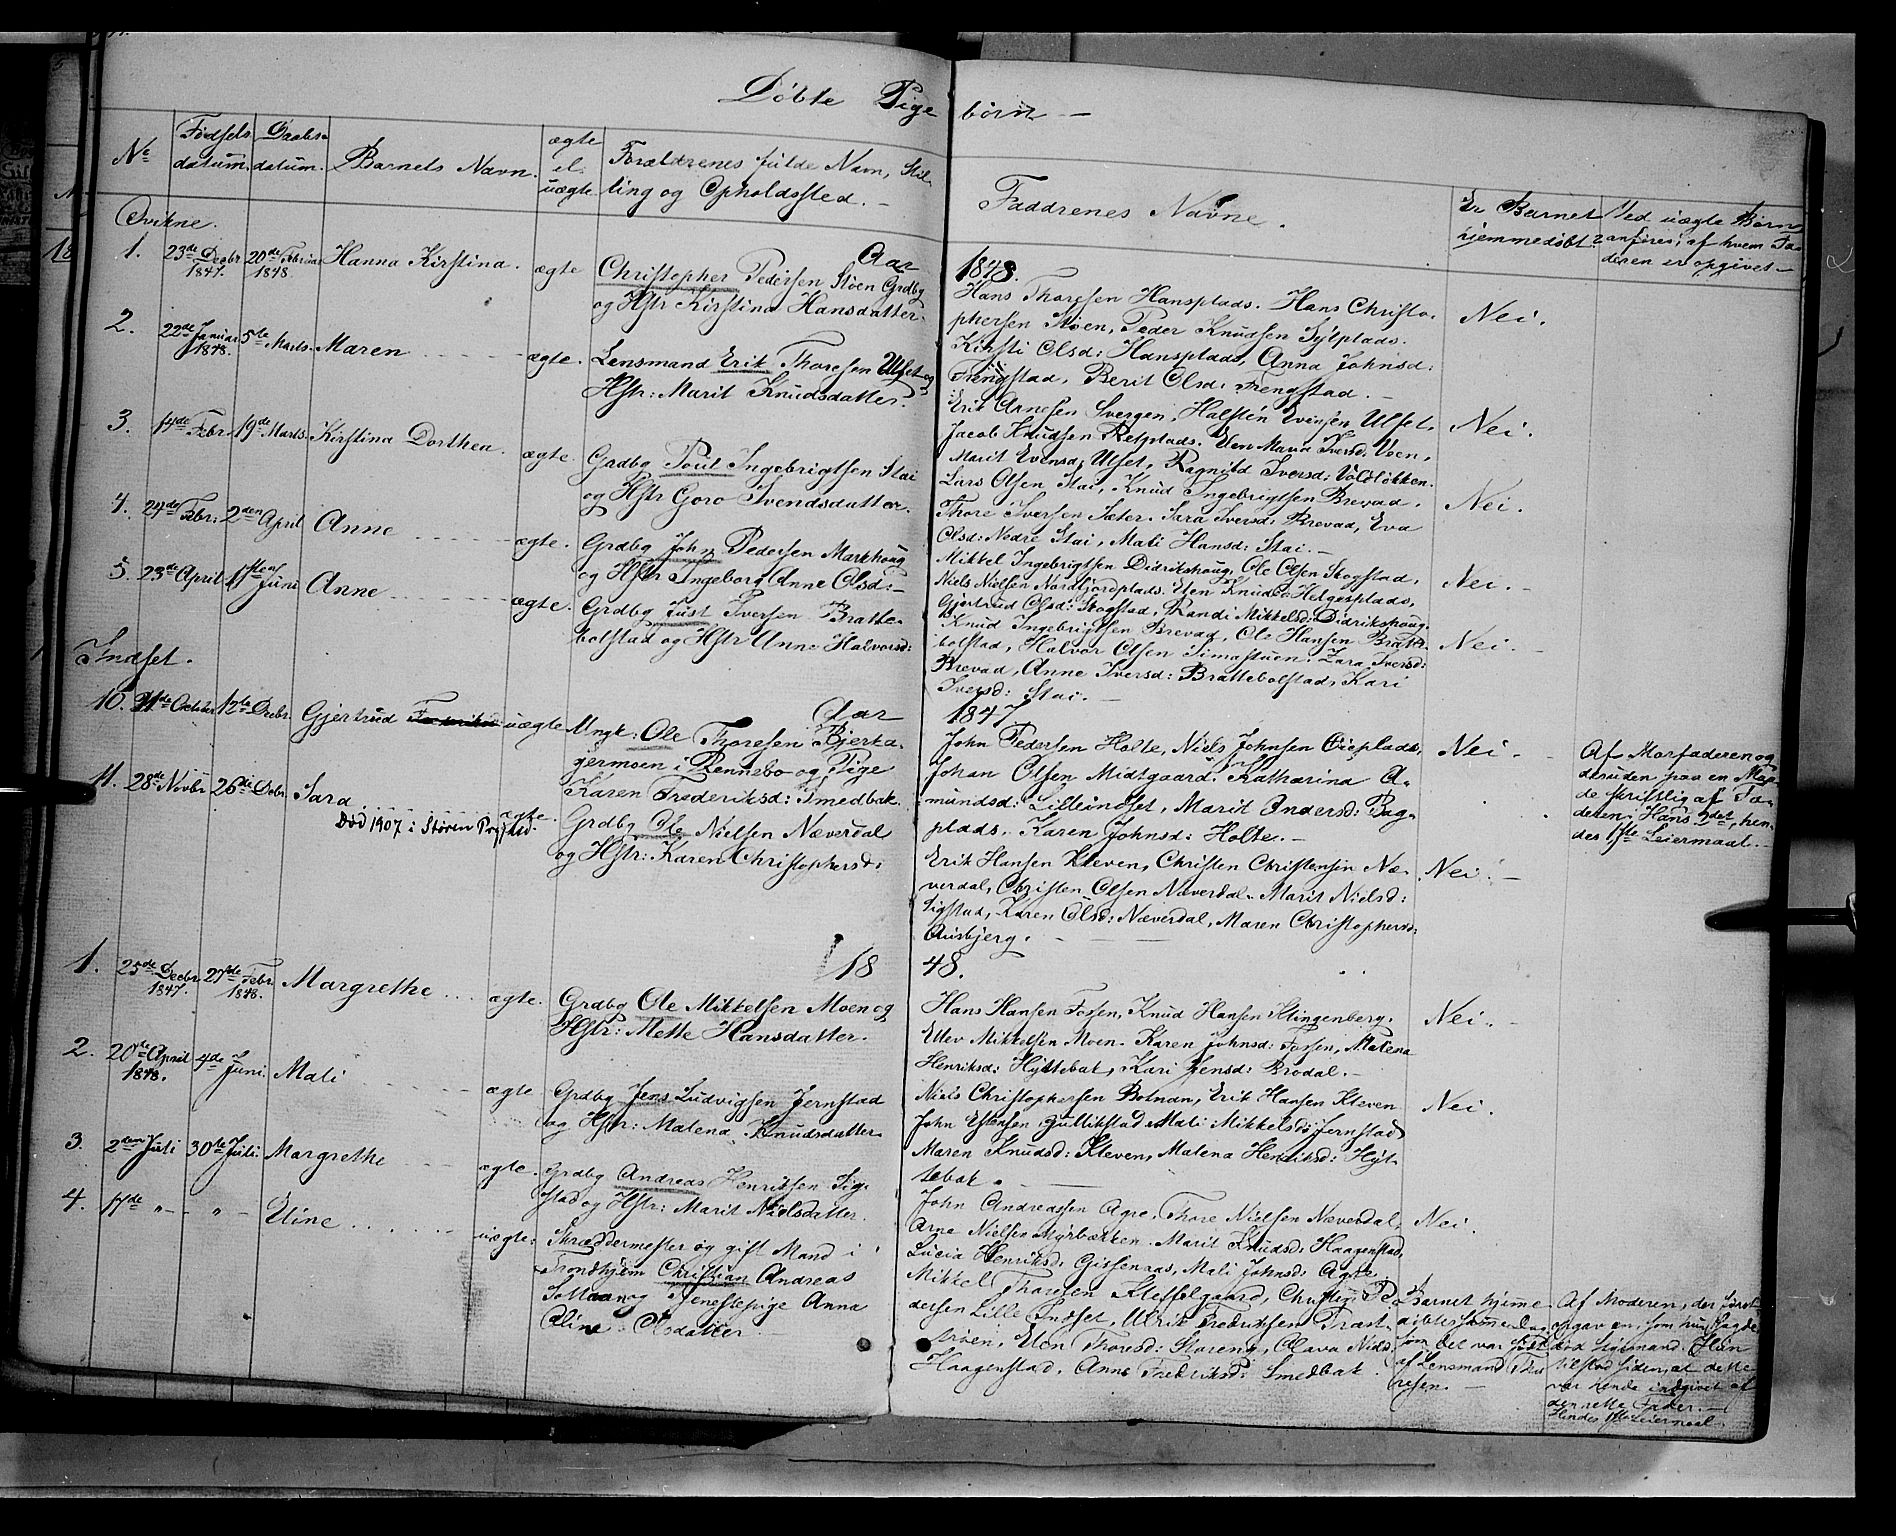 Døbte Pige børn —
No
Fødsels datum.
Daabs datum.
Barnets Navn.
ægte el. uægte
Forældrenes fulde Navn, Stil-
ling og Opholdssted. —
Faddrenes Navne.
Er Barnet hjemmedøbt?
Ved uægte Børn
anføres, af hvem Fa-
deren er opgivet —
Qvikne.
Aar 1848.
1. 23de Decbr 1847. 20de Februar 1848 Hanna Kirstina. ægte
Christopher Pedersen Støen Grdbg
og Hstr Kirstina Hansdatter.
Hans Thoresen Hansplads. Hans Christo-
phersen Støen, Peder Knudsen Sylplads.
Kirsti Olsd: Hansplads, Anna Johnsd:
Frengstad, Berit Olsd: Frengstad. —
Nei.
2. 22de Januar 1848. 5te Marts. Maren ægte.
Lensmand Erik Thoresen Ulset og
Hstr: Marit Knudsdatter.
Erik Arnesen Svergen, Halsten Evensen Ulset,
Jacob Knudsen Retplads. Elen Maria Iversd: Voen,
Marit Evensd: Ulset, Ragnild Iversd: Voldløkken.
Nei.
3. 14de Febr: 19de Marts. Kirstina Dorthea. ægte.
Grdbg Poul Ingebrigtsen Stai
og Hstr Goro Svendsdatter.
Lars Olsen Stai, Knud Ingebrigtsen Brevad.
Thore Iversen Sæter. Sara Iversd: Brevad, Eva
Olsd: Nedre Stai, Mali Hansd: Stai. —
Nei.
4. 24de Febr: 2den April Anne ægte.
Grdbg John Pedersen Markhoug
og Hstr Ingeborg Anne Olsd: —
Mikkel Ingebrigtsen Didrikshoug, Ole Olsen Skogstad,
Niels Nielsen Nordfjordplads. Elen Knudsd: Helgesplads,
Gjertrud Olsd: Skogstad, Randi Mikkelsd: Didrikshoug.
Nei. —
5. 23de April 11te Juni Anne ægte.
Grdbg Just Iversen Bratte-
bolstad og Hstr Anne Halvorsd:
Knud Ingebrigtsen Brevad, Ole Hansen Bratte-
bolstad, Halvor Olsen Simastuen. Zara Iversd:
Brevad, Anne Iversd: Brattebolstad, Kari
Iversd: Stai. —
Nei. —
Indset.
Aar 1847
10. October 12te Decbr. Gjertrud uægte
Ungk: Ole Thoresen Bjerka-
germoen i Rennebo og Pige
Karen Frederiksd: Smedbak.
John Pedersen Holte, Niels Johnsen Oieplads,
Johan Olsen Midtgaard. Katharina A-
mundsd: Lilleindset, Marit Andersd: Bag-
plads. Karen Johnsd: Holte. —
Nei —
Af Morfaderen og
desuden paa en
de skriftlig af Fa-
deren. Hans 2det, hen-
des 1ste Leiermaal. —
11. 28de Novbr 26de Decbr. Sara. ægte.
Død 1907 i Støren Prgjeld.
Grdbg Ole Nielsen Næverdal
og Hstr: Karen Christophersd:
Erik Hansen Kleven, Christen Christensen Næ-
verdal, Christen Olsen Næverdal. Marit Nielsd:
Sigstad, Karen Olsd: Næverdal, Maren Christophersd:
Ausbjerg. —
Nei. —
1848.
1. 25de Decbr 1847. 27de Febr 1848. Margrethe ægte.
Grdbg Ole Mikkelsen Moen og
Hstr: Mette Hansdatter.
Hans Hansen Fossen, Knud Hansen Klingenberg.
Ellev Mikkelsen Moen. Karen Johnsd: Fossen, Malena
Henriksd: Hyttebak, Kari Jensd: Brodal. —
Nei. —
2. 20de April 1848. 4de Juni. Mali ægte
Grdbg Jens Ludvigsen Jernstad
og Hstr: Malena Knudsdatter
Niels Christophersen Bolman, Erik Hansen Kleven
John Estensen Gullikstad. Mali Mikkelsd: Jernstad
Maren Knudsd: Kleven, Malena Henriksd: Hyt-
tebak. —
Nei.
3. 2den Juli 30te Juli. Margrethe ægte.
Grdbg Andreas Henriksen Sig-
stad og Hstr: Marit Nielsdatter.
John Andreassen Agre. Thore Nielsen Næverdal,
Arne Nielsen Myrbækken. Marit Knudsd: Haagenstad,
Lucia Henriksd: Gissenaas, Mali Johnsd: Agre.
Nei.
4. 11de " — " — Eline uægte:
Skræddermester og gift Mand i
Trondhjem Christian Andreas
og Tjenestepige Anna
Oline Olsdatter.
Mikkel Thoresen Steffelgaard, Christen Pe-
dersen Lille Indset, Ulrik Fredriksen Trast-
proen, Elen Thoresd: Storeng, Olava Nielsd:
Haagenstad, Anne Fredriksd: Smedbak.
Barnet hjemme-
døbt samme Dag
som det var født
af Lensmand Tho-
resen. —
Af Moderen, der først
opgav en, som hun sagde
død Sigemand. Hun
tilstod siden, at dette
var hende indgivet af
den rette Fader. —
Hendes 1ste Leiermaal.